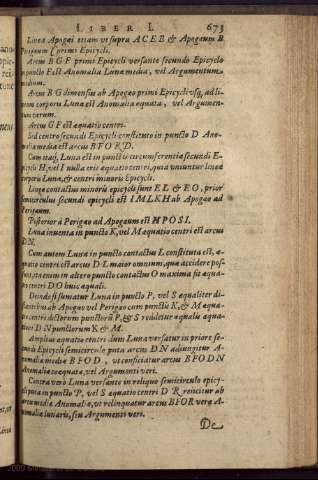 LIBER I. 673
Linea Apogæi etiam ut supra A C E B & Apogæum B
Perigæum C primi Epicycli.
Arcus B G F primi Epicycli versante secundo Epicyclo
in puncto F est Anomalia Lunæ media, vel Argumentum
medium.
Arcus B G dimensus ab Apogæo primi Epicycli usq, ad li-
neam corporis Lunæ est Anomalia æquata, vel Argumen-
tum verum.
Arcus G F est æquatio centri.
Sed centro secundi Epicycli constituto in puncto D Ano-
malia media est arcus B F O R D.
Cum itaq, Luna est in punctis circumferentiæ secundi E-
picycli H, vel I nulla erit æquatio centri, quia uniuntur linea
corporis Lunæ, & centri minoris Epicycli.
Lineæ contactus minoris epicycli sunt E L & E O, prior
semicirculus secundi epicycli est I M L K H ab Apogæo ad
Perigæum.
Posterior à Perigæo ad Apogæum est H P O S I.
Luna inventa in puncto K, vel M æquatio centri est arcus
D N.
Cum autem Luna in puncto contactus L constituta est, æ-
quatio centri est arcus D L maior omnium, quæ accidere pos-
sunt, tamen in altero puncto contactus O maxima fit æqua-
tio centri D O huic æquali.
Deinde si sumatur Luna in puncto P, vel S æqualiter di-
stantibus ab Apogæo vel Perigæo cum punctis K, & M æqua-
tio centri dictorum punctorũ P, & S redditur æqualis æqua-
tioni D N punctorum K & M.
Amplius æquatio centri dum Luna versatur in priore se-
cundi Epicycli semicirculo puta arcus D N adiungitur A-
nomaliæ mediæ B F O D, ut conficiatur arcus B F O D N
Anomaliæ coæquatæ, vel Argumenti veri.
Contra verò Luna versante in reliquo semicirculo epicy-
cli puta in puncto P, vel S æquatio centri D R reiicitur ab
arcu mediæ Anomaliæ, ut relinquatur arcus B F O R veræ A-
nomaliæ lunaris, seu Argumenti veri.
De